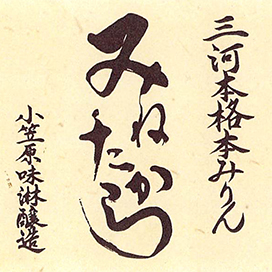 三河本格本みりん
みねたから
小笠原味淋醸造